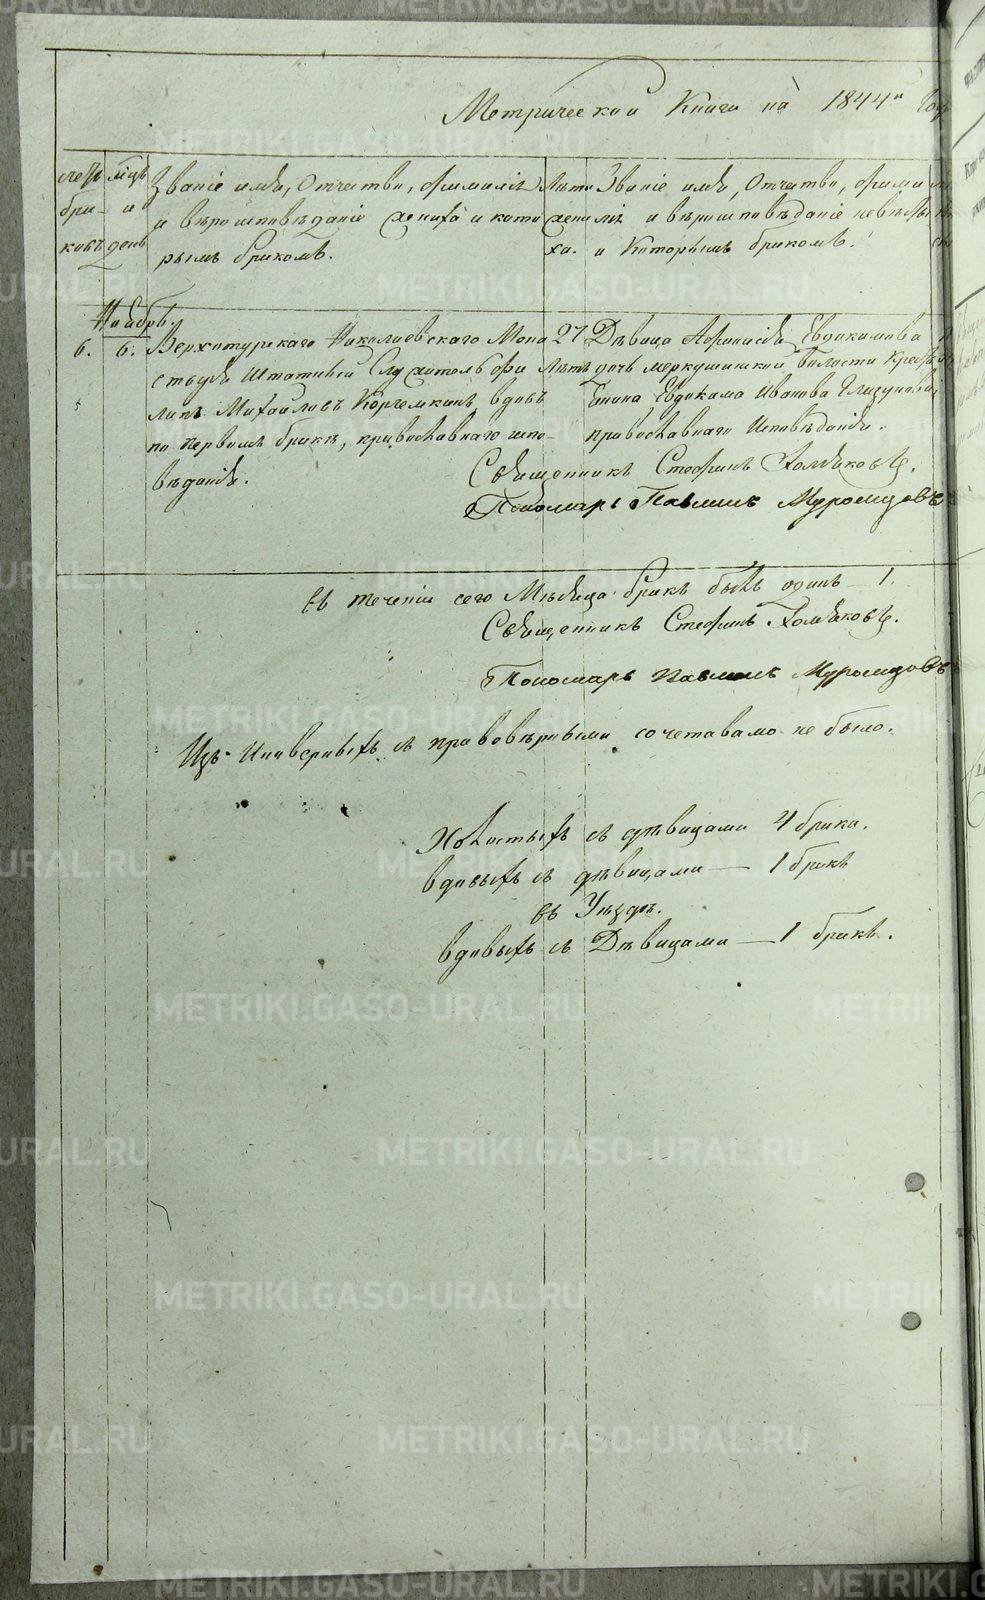 Метрической Книги на 1844й Год
счетъ браковъ
мцъ и день
Званіе имя, Отчество, фамилія
и вѣроисповѣданіе жениха и кото
рымъ бракомъ.
Лѣта жениха.
Званіе имя, Отчество, фами
лія и вѣроисповѣданіе невѣсты
и Которымъ бракомъ.
Ноябрь.
6.
6.
Верхотурскаго Николаевскаго Мона
стыря Штатный Служитель Фи
липъ Михайловъ вдовъ
по первомъ бракѣ, православнаго испо-
вѣданія.
27
Лѣтъ
Дѣвица Афанасія Евдокимова
дочь меркушинской Волости Кресть
Евдокима Иванова Глазунова
православнаго Исповѣданія.
Священникъ Стефанъ Хомяковъ.
Пономарь Павелъ Муромцовъ
въ теченіи сего Мѣсяца бракъ былъ одинъ 1.
Священникъ Стефанъ Хомяковъ.
Пономарь Павелъ Муромцовъ
Изъ Иноверныхъ съ православными сочетавамо не было.
Холостыхъ съ дѣвицами 4 брака.
вдовыхъ съ дѣвицами — 1 бракъ
въ Уѣздѣ.
вдовыхъ съ Дѣвицами — 1 бракъ.
METRIKI.GASO-URAL.RU